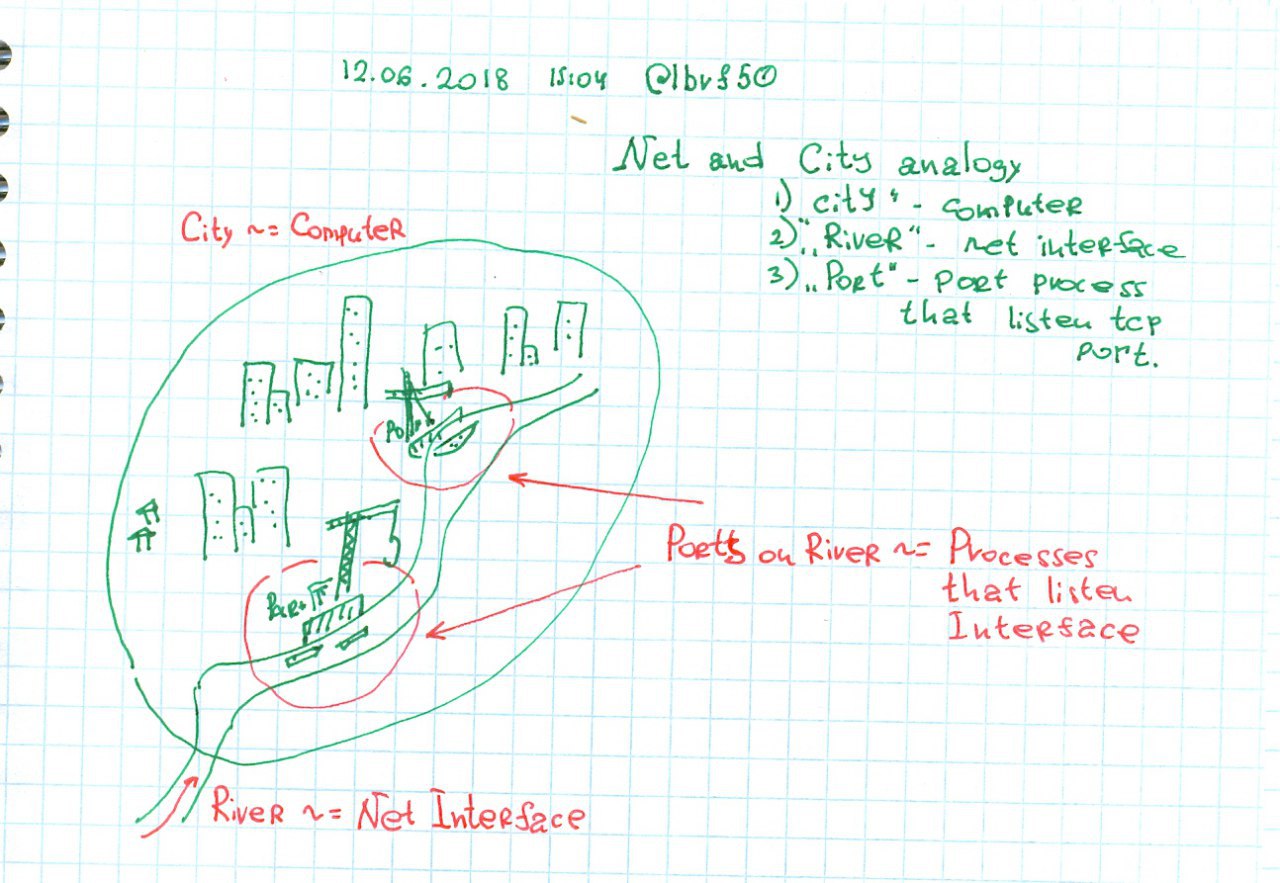 12.06.2018 15:04 @lbvf50
Net and City analogy
1) "City" - computer
2) „River" - net interface
3) „Port" - port process
that listen tcp
port.
City ~= Computer
Po
Port
Ports on River ~= Processes
that listen
Interface
River ~= Net Interface